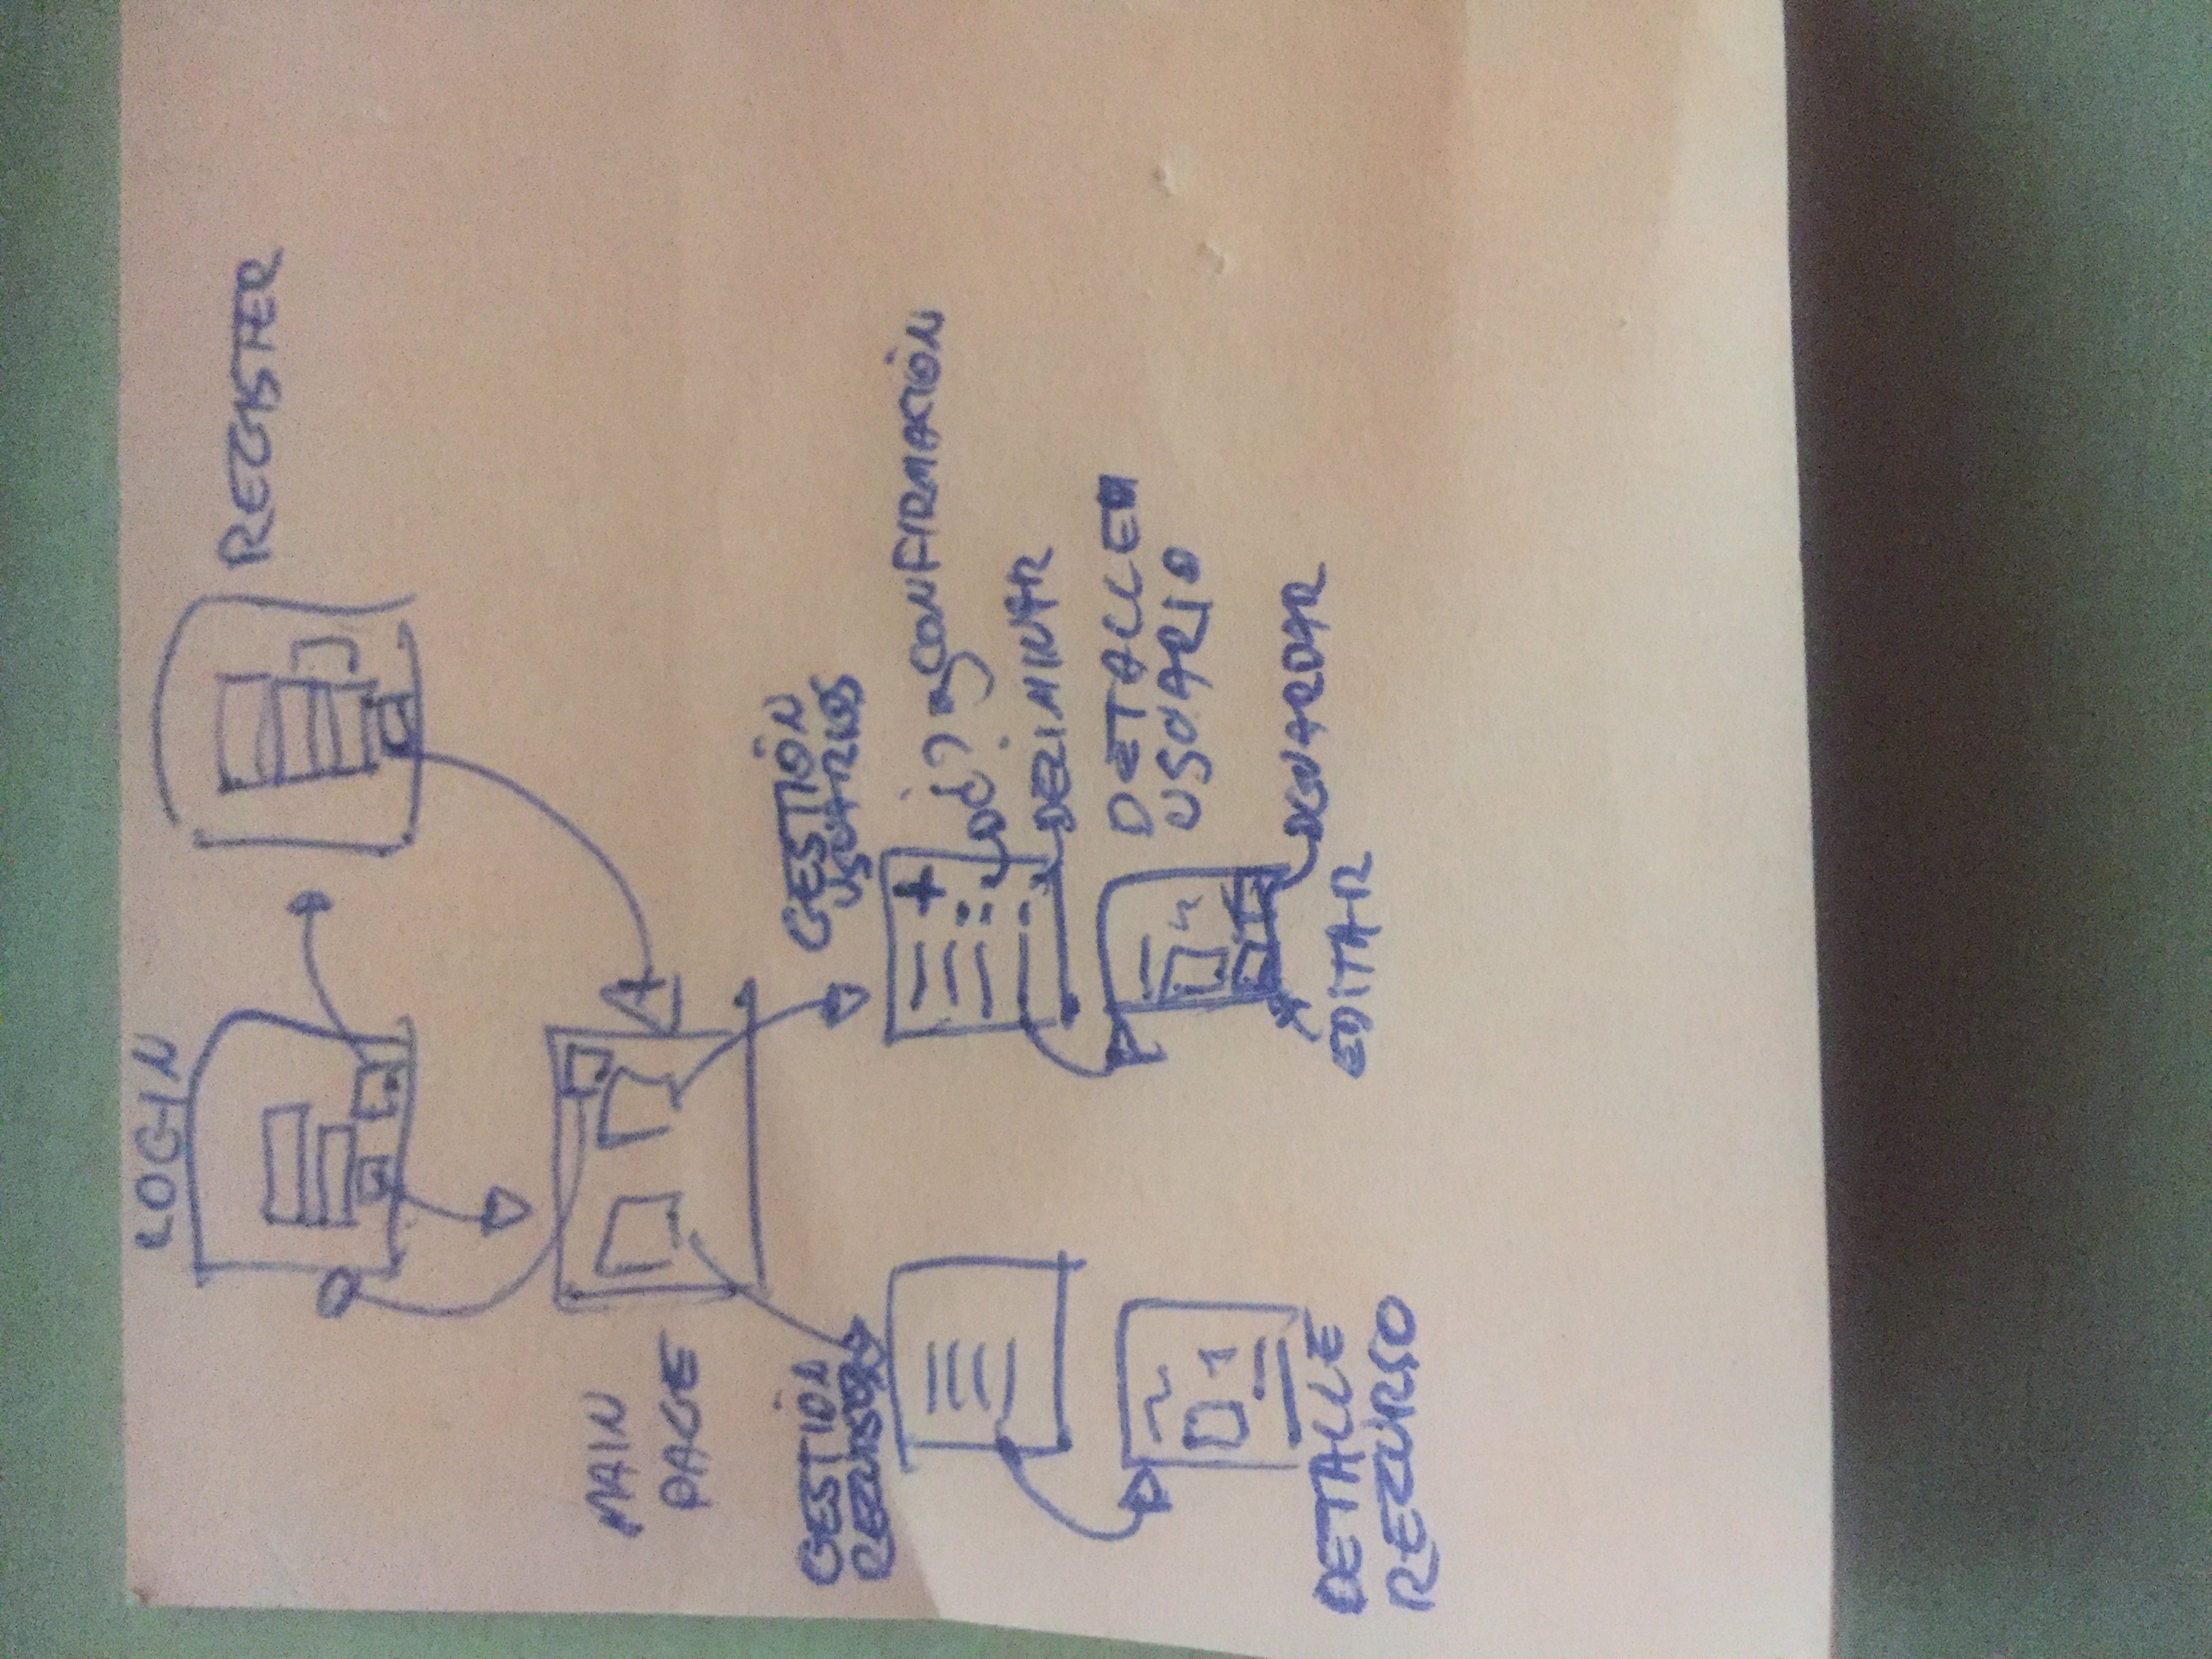 LOGIN
REGISTER
MAIN
PAGE
GESTIÓN
RECURSOS
GESTIÓN
USUARIOS
+
¿? CONFIRMACIÓN
ELIMINAR
DETALLE
USUARIO
GUARDAR
EDITAR
DETALLE
RECURSO